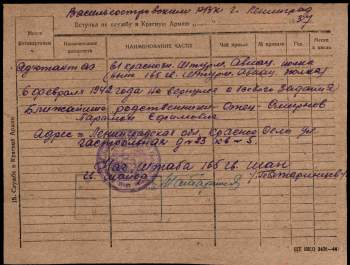 Василеостровским РВК г. Ленинград
Вступил на службу в Красную Армию
37
Место фотокарточки
Наименование должности
НАИМЕНОВАНИЕ ЧАСТИ
Чей приказ
№ приказа
Год
Месяц и число
Адъютант аэ
61 Краснозн. Штурм. Авиац. полка
(быв 165 Штурм. Авиац полка)
6 февраля 1942 года не вернулся с боевого задания
Ближайший родственник - отец - Смирнов
Ефимович
Адрес - Ленинградская обл. Красное Село ул.
д № 23 кв - 5.
Нач Штаба 165 гв. шап
гв. майор
/Татаринцев/
15. Служба в Красной Армии